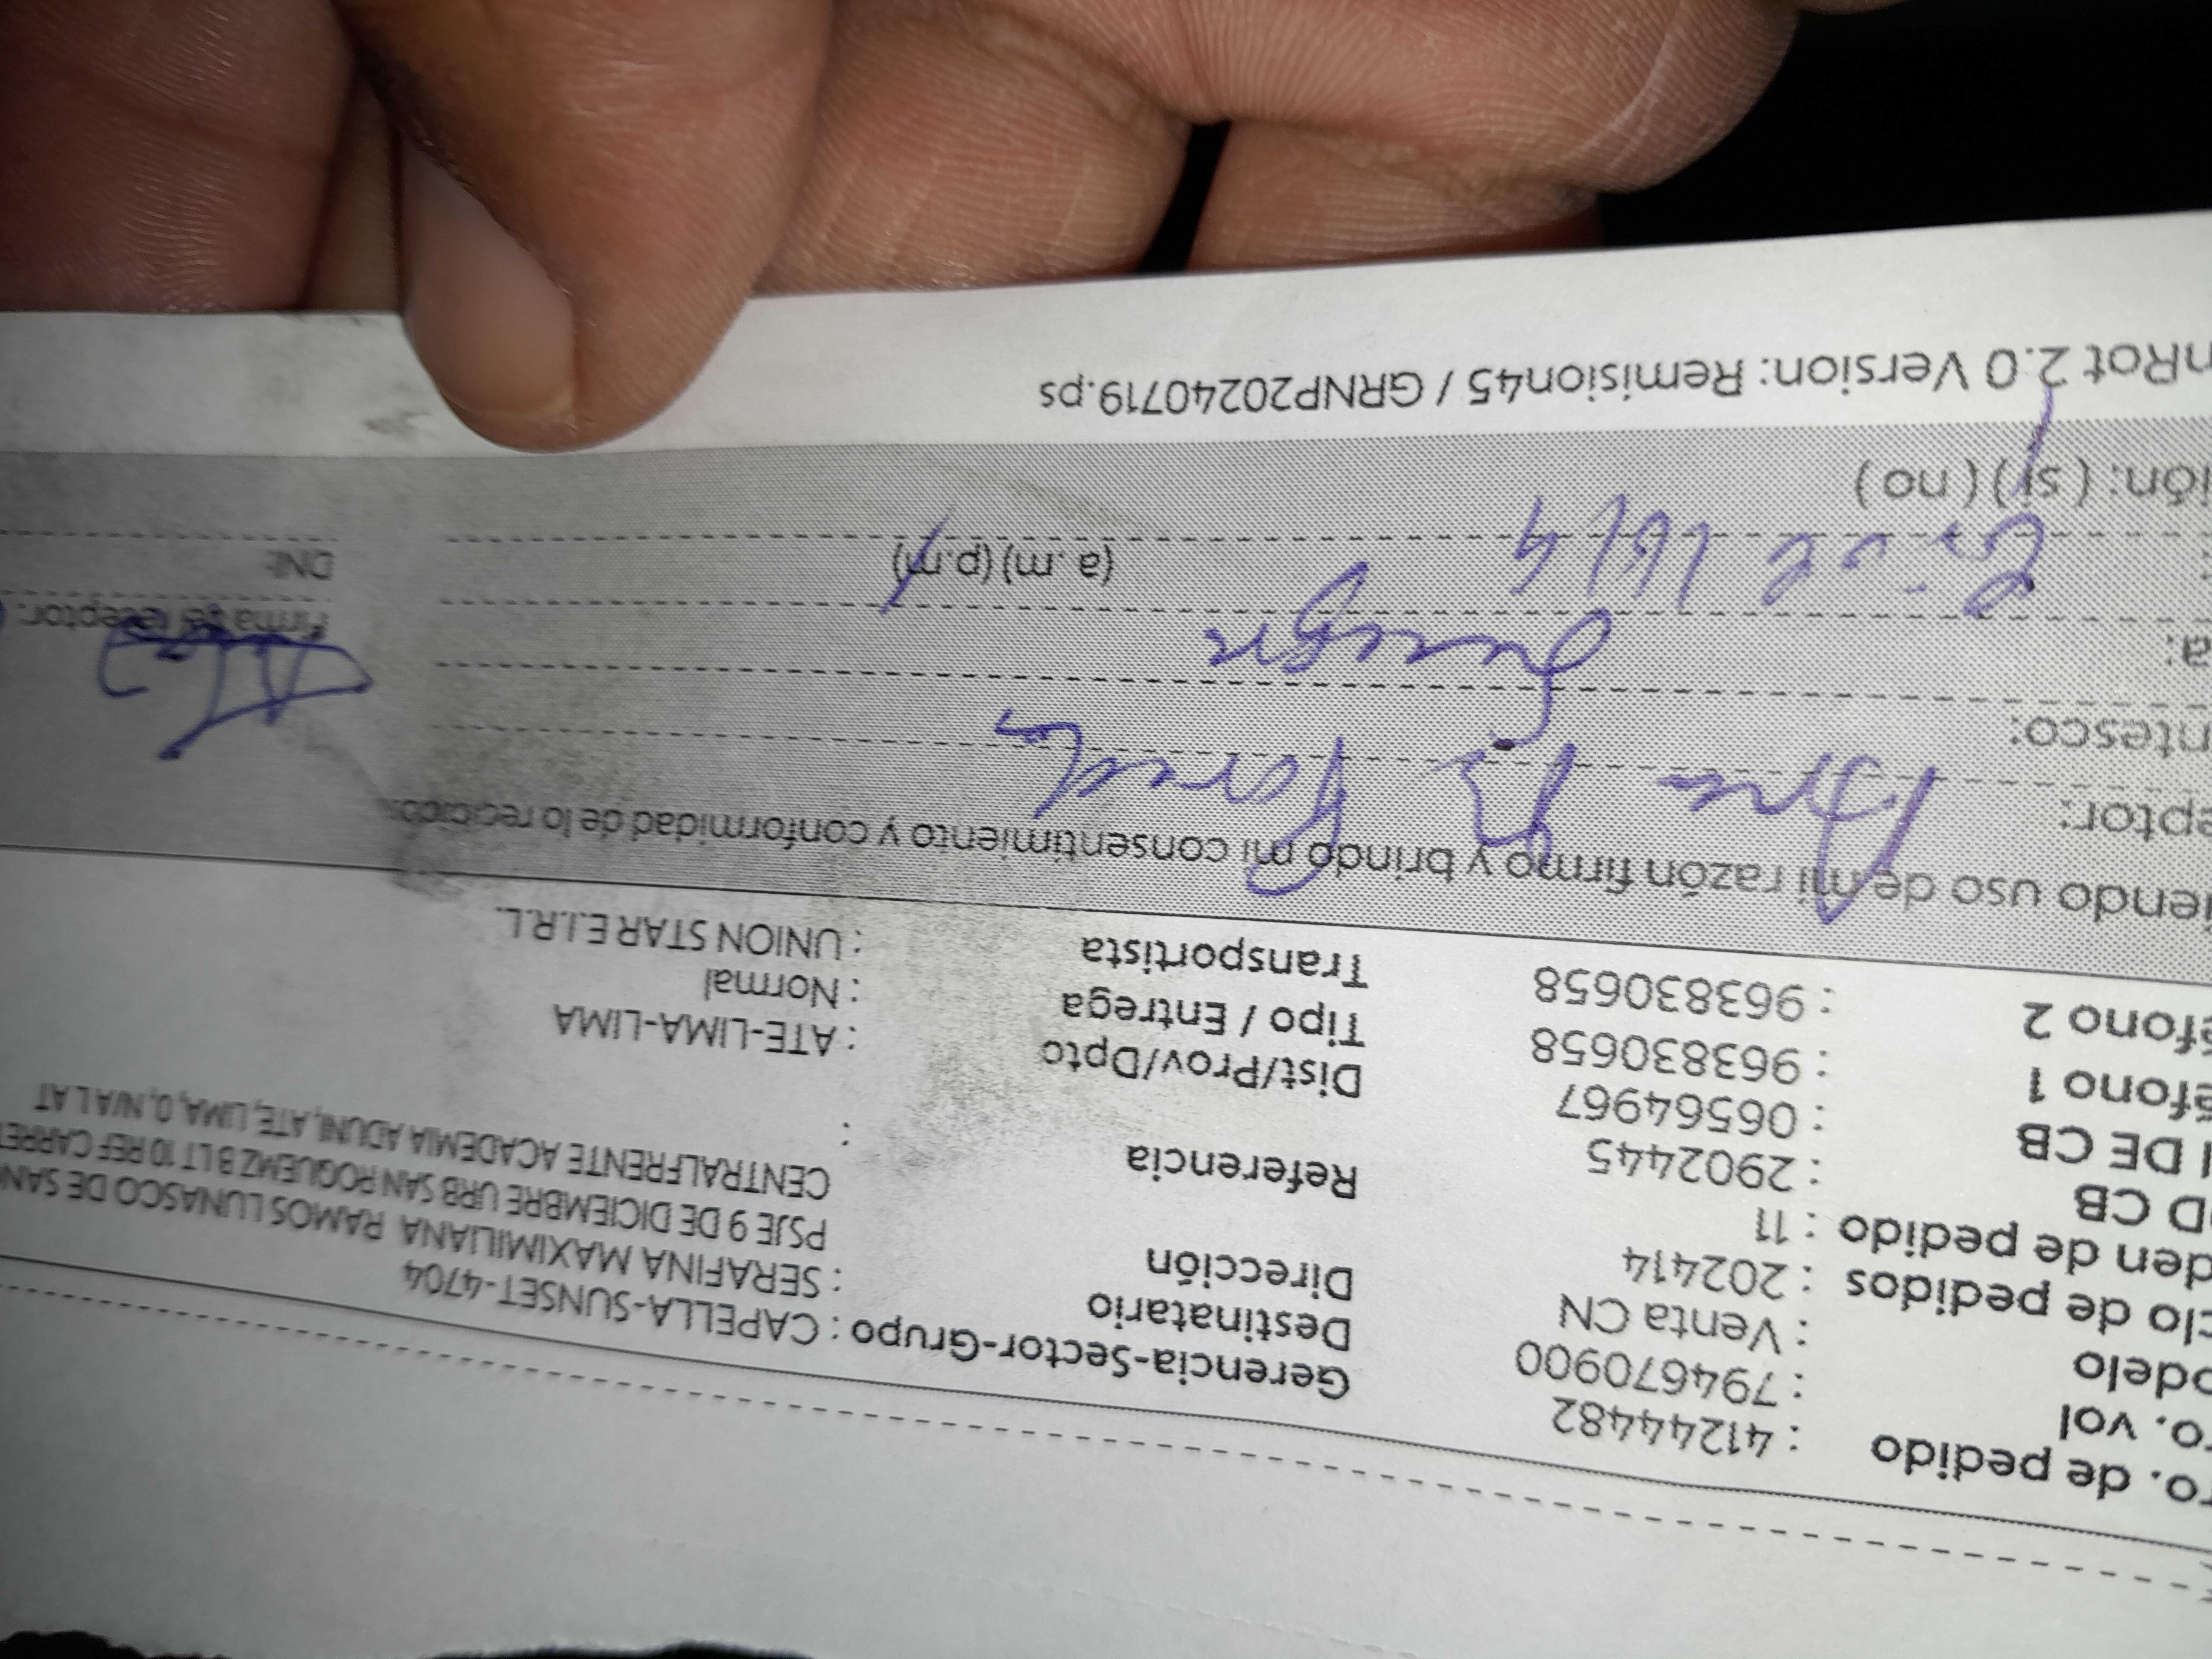 ro. de pedido : 41244482
ro. vol : 794670900
odelo : Venta CN
clo de pedidos : 202414
den de pedido : 11
OD CB : 2902445
I DE CB : 06564967
éfono 1 : 963830658
éfono 2 : 963830658
Gerencia-Sector-Grupo : CAPELLA-SUNSET-4704
Destinatario : SERAFINA MAXIMILIANA RAMOS LUNASCO DE SAN
Dirección PSJE 9 DE DICIEMBRE URB SAN ROQUEMZ B LT 10 REF CARRET
CENTRALFRENTE ACADEMIA ADUNI, ATE, LIMA, 0, N/A LAT
Referencia :
Dist/Prov/Dpto : ATE-LIMA-LIMA
Tipo / Entrega : Normal
Transportista : UNION STAR E.I.R.L.
iendo uso de mi razón firmo y brindo mi consentimiento y conformidad de lo recibido.
eptor:
ntesco:
a:
(a.m) (p.m)
ión: ( si ) ( no )
Firma del receptor:
DNI:
nRot 2.0 Version: Remision45 / GRNP20240719.ps